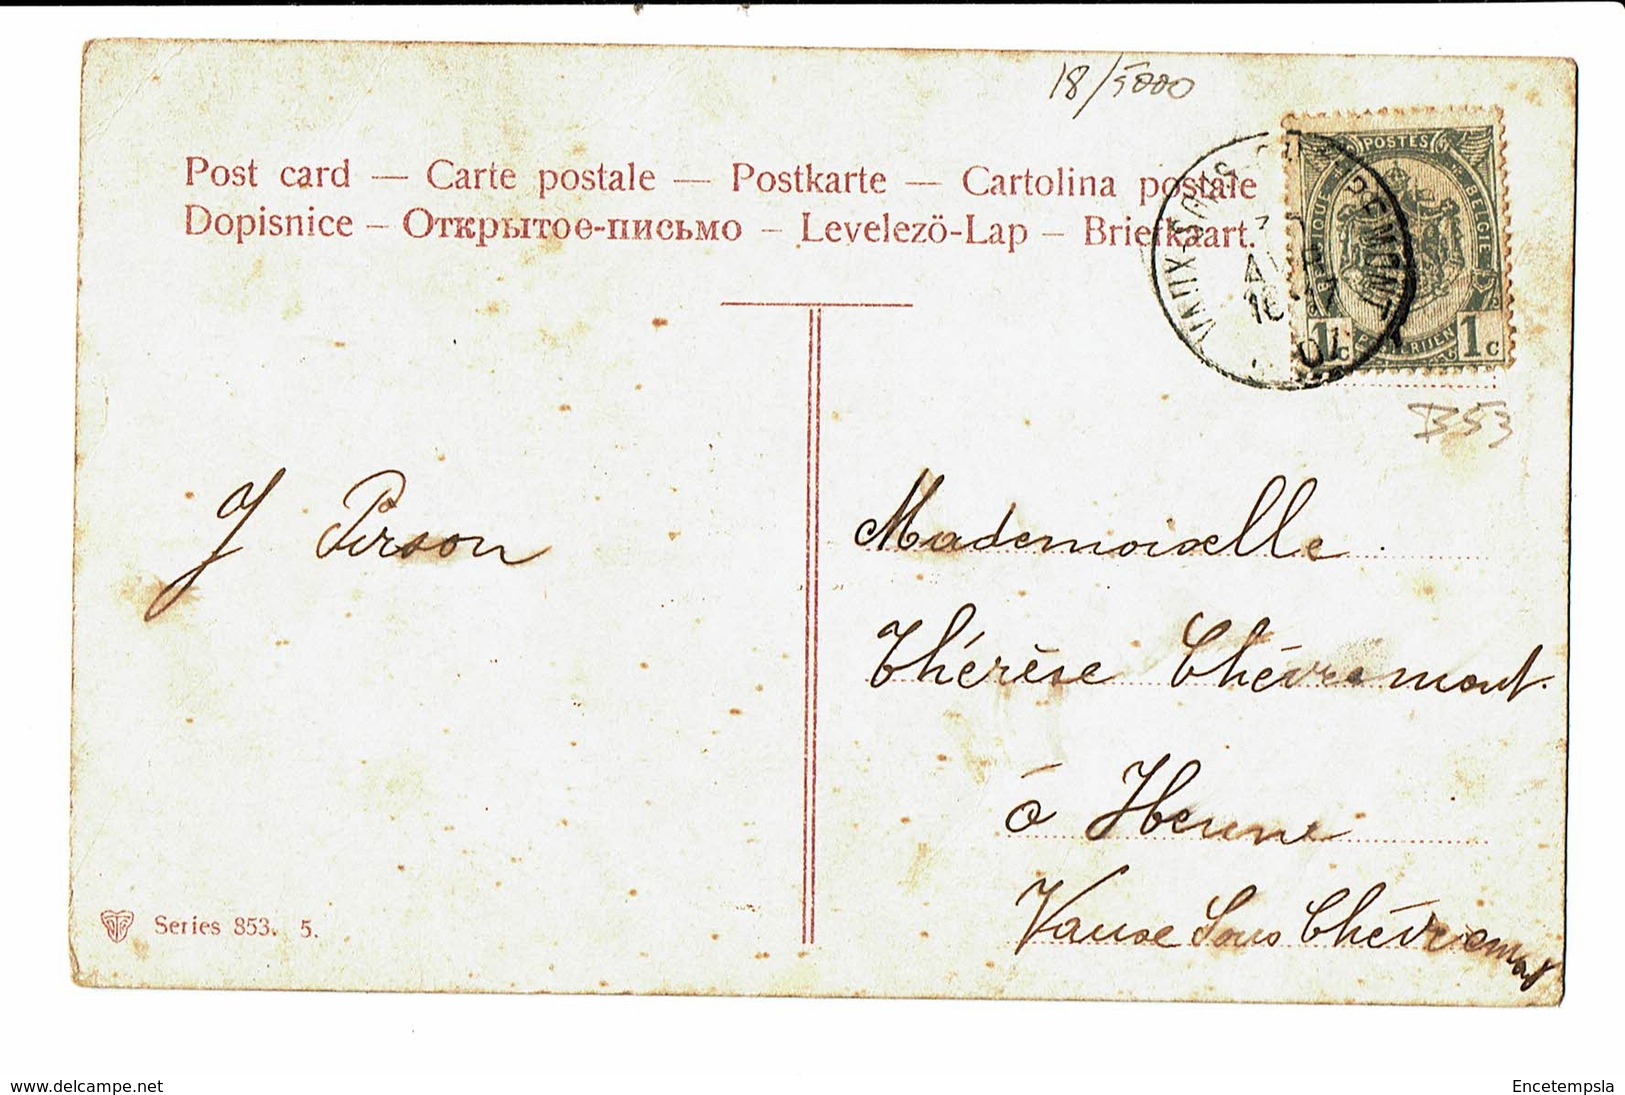 18/5000
Post card — Carte postale — Postkarte — Cartolina postale
Dopisnice – Открытое-письмо – Levelezö-Lap – Briefkaart.
POSTES
BELGIQUE
BELGIE
1c
1c
VAUX-SOUS-CHÈVREMONT
07
B53
J Pirson
Mademoiselle
Thérèse Chévremont.
á Henne
Vause Sous Chévremont
Series 853. 5.
www.delcampe.net
Encetempsla